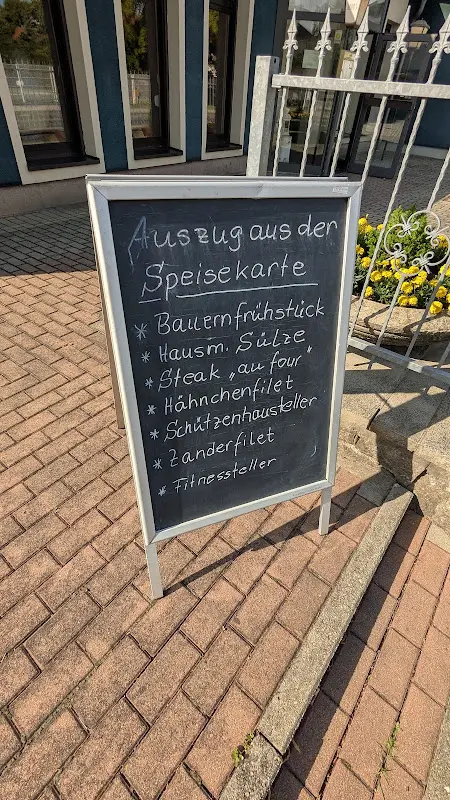 Auszug aus der
Speisekarte
* Bauernfrühstück
* Hausm. Sülze
* Steak „au four"
* Hähnchenfilet
* Schützenhausteller
* Zanderfilet
* Fitnessteller